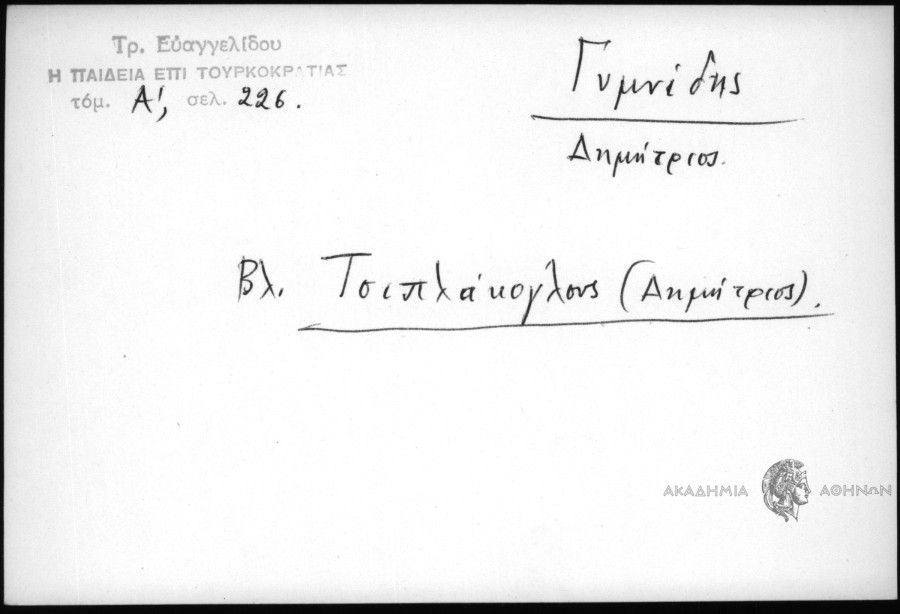 Τρ. Εὐαγγελίδου
Η ΠΑΙΔΕΙΑ ΕΠΙ ΤΟΥΡΚΟΚΡΑΤΙΑΣ
τόμ. Α', σελ. 226.
Γυμνίδης
Δημήτριος.
Βλ. Τσιπλάκογλους (Δημήτριος).
ΑΚΑΔΗΜΙΑ ΑΘΗΝΩΝ